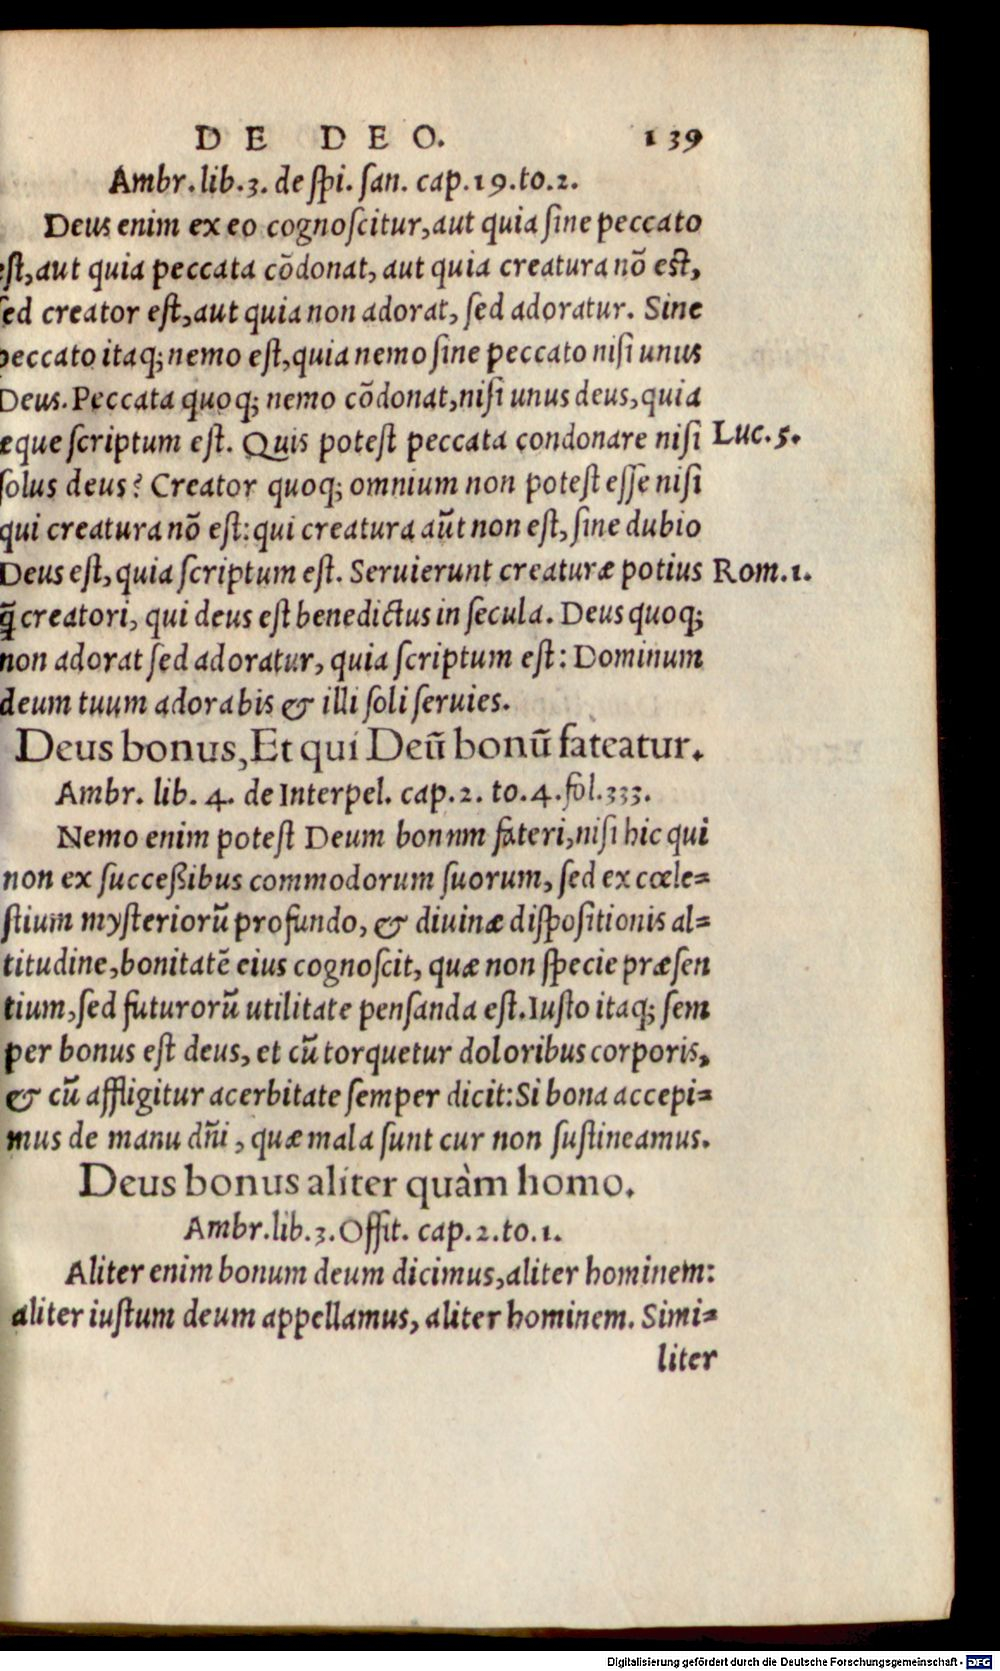 DE DEO. 139
Ambr. lib. 3. de spi. san. cap. 19. to. 2.
Deus enim ex eo cognoscitur, aut quia sine peccato
est, aut quia peccata cōdonat, aut quia creatura nō est,
sed creator est, aut quia non adorat, sed adoratur. Sine
peccato itaq; nemo est, quia nemo sine peccato nisi unus
Deus. Peccata quoq; nemo cōdonat, nisi unus deus, quia
æque scriptum est. Quis potest peccata condonare nisi Luc. 5.
solus deus? Creator quoq; omnium non potest esse nisi
qui creatura nō est: qui creatura aūt non est, sine dubio
Deus est, quia scriptum est. Seruierunt creaturæ potius Rom. 1.
q̄ creatori, qui deus est benedictus in secula. Deus quoq;
non adorat sed adoratur, quia scriptum est: Dominum
deum tuum adorabis & illi soli seruies.
Deus bonus, Et qui Deū bonū fateatur.
Ambr. lib. 4. de Interpel. cap. 2. to. 4. fol. 333.
Nemo enim potest Deum bonnm fateri, nisi hic qui
non ex succeßibus commodorum suorum, sed ex cœle=
stium mysteriorū profundo, & diuinæ dispositionis al=
titudine, bonitatē eius cognoscit, quæ non specie præsen
tium, sed futurorū utilitate pensanda est. Iusto itaq; sem
per bonus est deus, et cū torquetur doloribus corporis,
& cū affligitur acerbitate semper dicit: Si bona accepi=
mus de manu dn̄i, quæ mala sunt cur non sustineamus.
Deus bonus aliter quàm homo.
Ambr. lib. 3. Offit. cap. 2. to. 1.
Aliter enim bonum deum dicimus, aliter hominem:
aliter iustum deum appellamus, aliter hominem. Simi=
liter
Digitalisierung gefördert durch die Deutsche Forschungsgemeinschaft - DFG